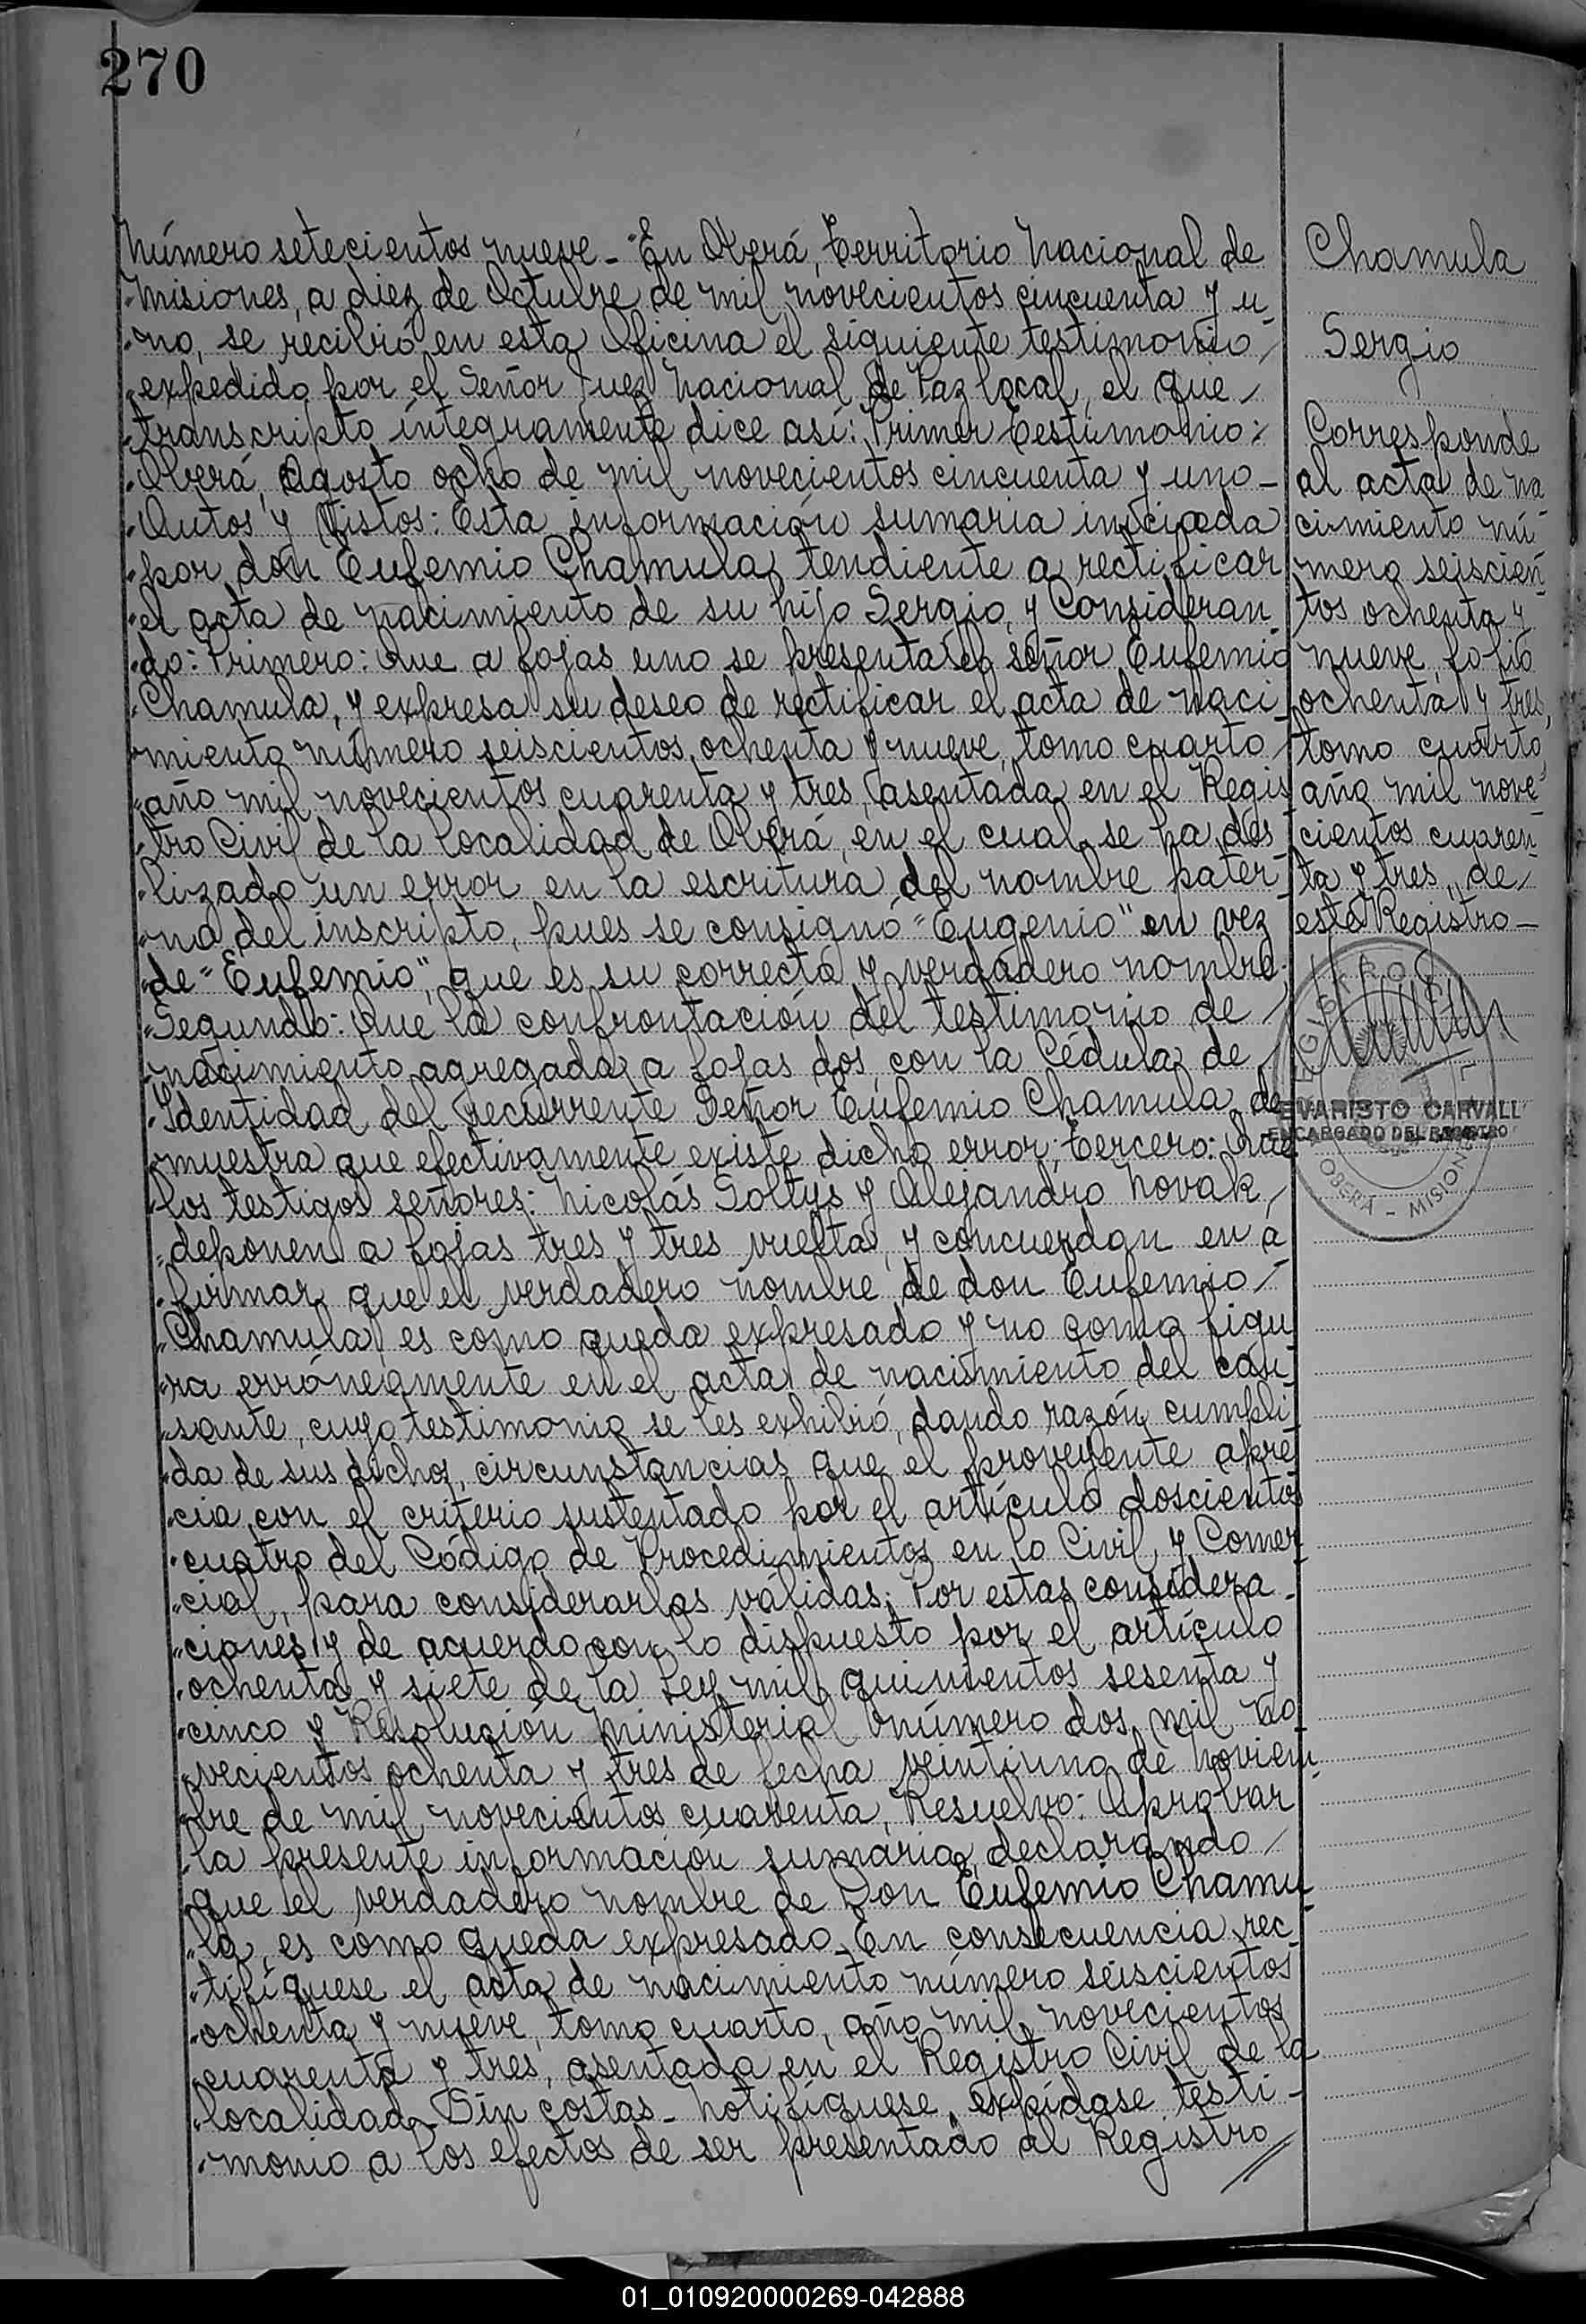 270
Número setecientos nueve - "En Oberá, Territorio Nacional de
"Misiones, a diez de Octubre de mil novecientos cincuenta y u_
"no, se recibió en esta Oficina el siguiente testimonio /
"expedido por el Señor Juez Nacional de Paz local, el que /
"transcripto íntegramente dice así: Primer Testimonio:
"Oberá, Agosto ocho de mil novecientos cincuenta y uno -
"Autos y Vistos: Esta información sumaria iniciada
"por don Eufemio Chamula, tendiente a rectificar
"el acta de nacimiento de su hijo Sergio, y Consideran_
"do: Primero: Que a fojas uno se presenta el señor Eufemio
"Chamula, y expresa su deseo de rectificar el acta de naci_
"miento número seiscientos ochenta y nueve, tomo cuarto
"año mil novecientos cuarenta y tres, asentada en el Regis_
"tro Civil de la localidad de Oberá, en el cual se ha des_
"lizado un error en la escritura del nombre pater_
"no del inscripto, pues se consignó "Eugenio" en vez
"de "Eufemio", que es su correcto y verdadero nombre;
"Segundo: Que la confrontación del testimonio de /
"nacimiento agregada a fojas dos, con la Cédula de /
"Identidad del recurrente Señor Eufemio Chamula, de_
"muestra que efectivamente existe dicho error; Tercero: Que
"los testigos señores: Nicolás Soltys y Alejandro Novak /
"deponen a fojas tres y tres vuelta, y concuerdan en a_
"firmar que el verdadero nombre de don Eufemio /
"Chamula, es como queda expresado y no como figu_
"ra erróneamente en el acta de nacimiento del cau_
"sante, cuyo testimonio se les exhibió, dando razón cumpli_
"da de sus dichos, circunstancias que el proveyente apre_
"cia con el criterio sustentado por el artículo doscientos
"cuatro del Código de Procedimientos en lo Civil y Comer_
"cial, para considerarlas válidas; Por estas considera_
"ciones y de acuerdo con lo dispuesto por el artículo
"ochenta y siete de la Ley mil quinientos sesenta y
"cinco y Resolución Ministerial número dos mil no_
"vecientos ochenta y tres de fecha veintiuno de noviem_
"bre de mil novecientos cuarenta, Resuelvo: Aprobar
"la presente información sumaria, declarando /
"que el verdadero nombre de Don Eufemio Chamu_
"la, es como queda expresado - En consecuencia rec_
"tifíquese el acta de nacimiento número seiscientos
"ochenta y nueve, tomo cuarto, año mil novecientos
"cuarenta y tres, asentada en el Registro Civil de la
"localidad - Sin costas - Notifíquese, expídase testi_
"monio a los efectos de ser presentado al Registro //
Chamula
Sergio
Corresponde
al acta de na_
cimiento nú_
mero seiscien_
tos ochenta y
nueve, folio
ochenta y tres,
tomo cuarto,
año mil nove_
cientos cuaren_
ta y tres, de /
este Registro -
EVARISTO CARVALL
ENCARGADO DEL REGISTRO
REGISTRO CIVIL
OBERÁ - MISIONES
01_010920000269-042888